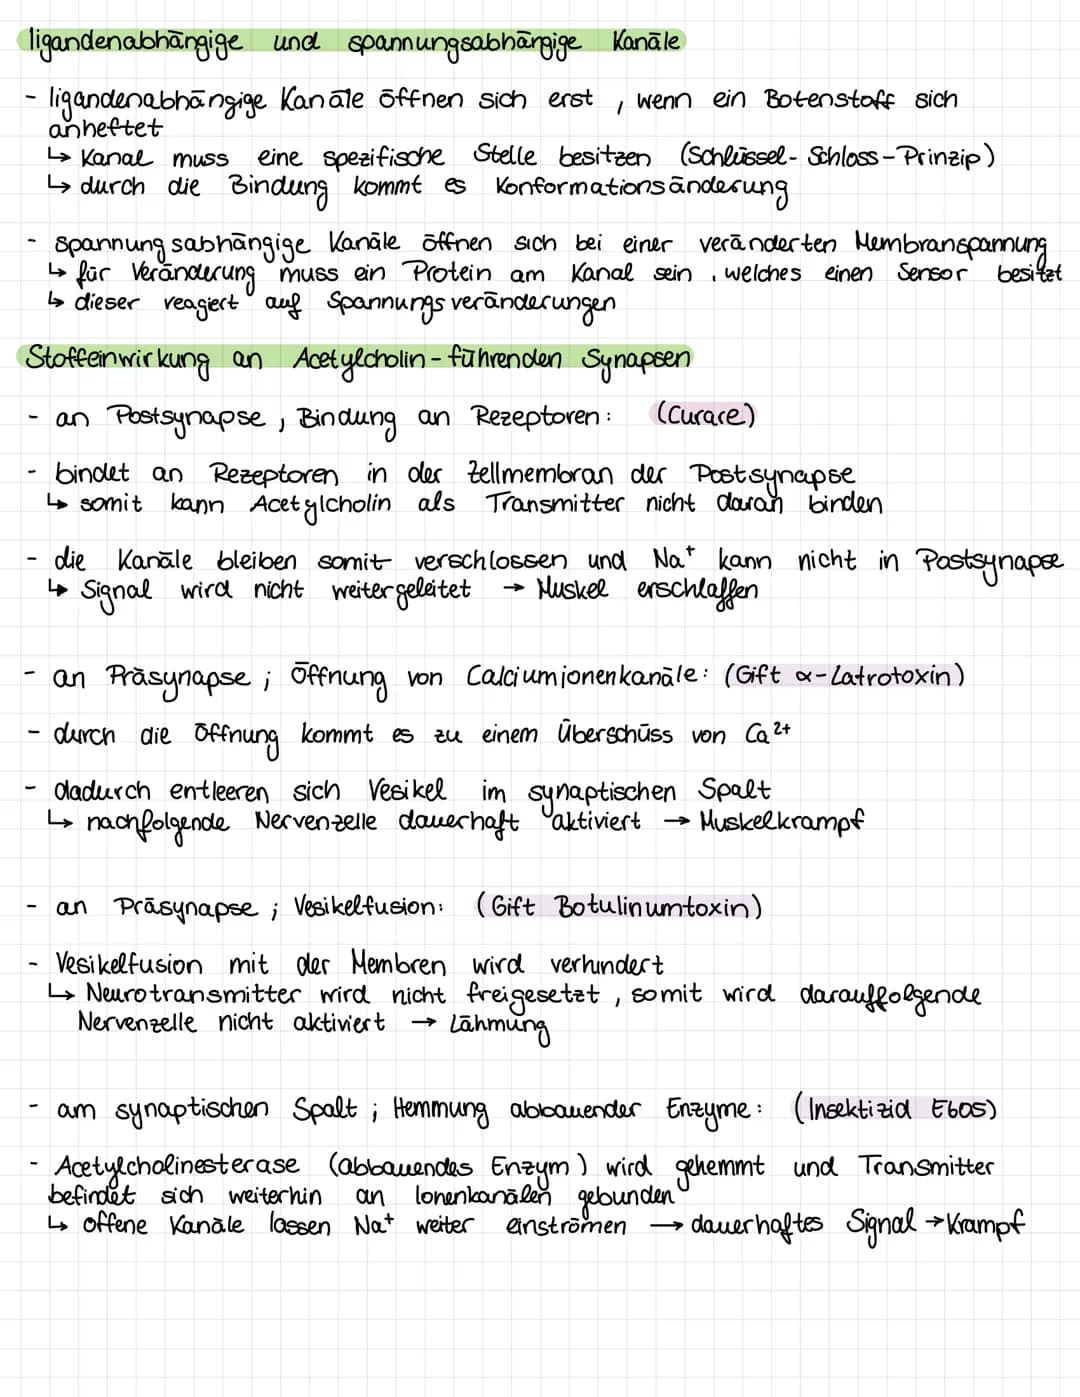 ligandenabhängige und spannungsabhängige Kanäle
- ligandenabhängige Kanäle öffnen sich erst, wenn ein Botenstoff sich
anheftet
↳ Kanal muss eine spezifische Stelle besitzen (Schlüssel-Schloss-Prinzip)
↳ durch die Bindung kommt es Konformationsänderung
- spannungsabhängige Kanäle öffnen sich bei einer veränderten Membranspannung
↳ für Veränderung muss ein Protein am Kanal sein, welches einen Sensor besitzt
↳ dieser reagiert auf Spannungsveränderungen
Stoffeinwirkung an Acetylcholin-führenden Synapsen
- an Postsynapse, Bindung an Rezeptoren: (Curare)
- bindet an Rezeptoren in der Zellmembran der Postsynapse
↳ somit kann Acetylcholin als Transmitter nicht daran binden
- die Kanäle bleiben somit verschlossen und Na⁺ kann nicht in Postsynapse
↳ Signal wird nicht weitergeleitet → Muskel erschlaffen
- an Präsynapse; Öffnung von Calciumionenkanäle: (Gift α-Latrotoxin)
- durch die Öffnung kommt es zu einem Überschüss von Ca²⁺
- dadurch entleeren sich Vesikel im synaptischen Spalt
↳ nachfolgende Nervenzelle dauerhaft aktiviert → Muskelkrampf
- an Präsynapse; Vesikelfusion: (Gift Botulinumtoxin)
- Vesikelfusion mit der Membren wird verhindert
↳ Neurotransmitter wird nicht freigesetzt, somit wird darauffolgende
Nervenzelle nicht aktiviert → Lähmung
- am synaptischen Spalt; Hemmung abbauender Enzyme: (Insektizid E605)
- Acetylcholinesterase (abbauendes Enzym) wird gehemmt und Transmitter
befindet sich weiterhin an Ionenkanälen gebunden
↳ offene Kanäle lassen Na⁺ weiter einströmen → dauerhaftes Signal → Krampf